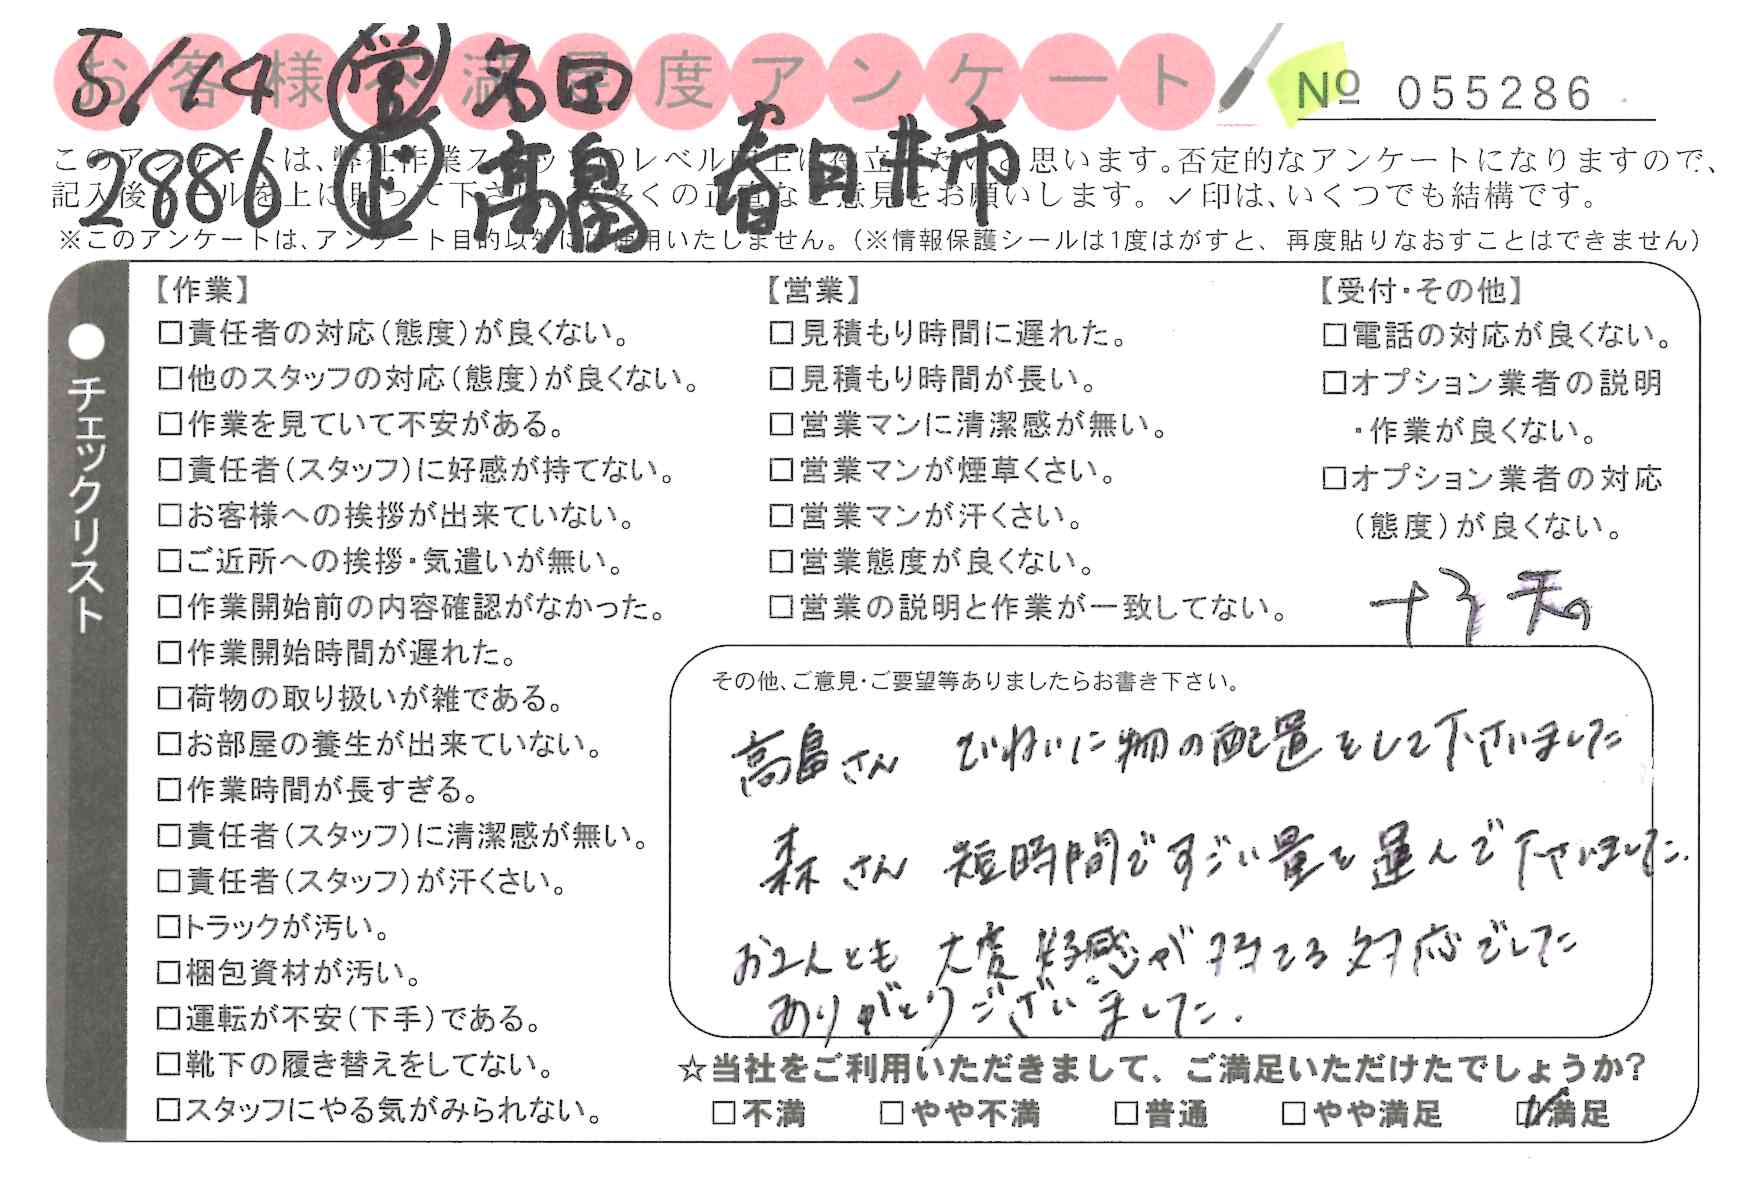 お客様不満足度アンケート № 055286
5/14 営 名田
2886 高島 春日井市
このアンケートは、弊社作業スタッフのレベル向上に役立てたいと思います。否定的なアンケートになりますので、
記入後シールを上に貼って下さい。数多くの正直なご意見をお願いします。✓印は、いくつでも結構です。
※このアンケートは、アンケート目的以外には使用いたしません。（※情報保護シールは1度はがすと、再度貼りなおすことはできません）
●チェックリスト
【作業】
□責任者の対応（態度）が良くない。
□他のスタッフの対応（態度）が良くない。
□作業を見ていて不安がある。
□責任者（スタッフ）に好感が持てない。
□お客様への挨拶が出来ていない。
□ご近所への挨拶・気遣いが無い。
□作業開始前の内容確認がなかった。
□作業開始時間が遅れた。
□荷物の取り扱いが雑である。
□お部屋の養生が出来ていない。
□作業時間が長すぎる。
□責任者（スタッフ）に清潔感が無い。
□責任者（スタッフ）が汗くさい。
□トラックが汚い。
□梱包資材が汚い。
□運転が不安（下手）である。
□靴下の履き替えをしてない。
□スタッフにやる気がみられない。
【営業】
□見積もり時間に遅れた。
□見積もり時間が長い。
□営業マンに清潔感が無い。
□営業マンが煙草くさい。
□営業マンが汗くさい。
□営業態度が良くない。
□営業の説明と作業が一致してない。
【受付・その他】
□電話の対応が良くない。
□オプション業者の説明
・作業が良くない。
□オプション業者の対応
（態度）が良くない。
その他、ご意見・ご要望等ありましたらお書き下さい。
高島さん ていねいに物の配置をして下さいました
森さん 短時間ですごい量を運んで下さいました.
お2人とも 大変好感が持てる対応でした
ありがとうございました.
☆当社をご利用いただきまして、ご満足いただけたでしょうか?
□不満 □やや不満 □普通 □やや満足 ☑満足